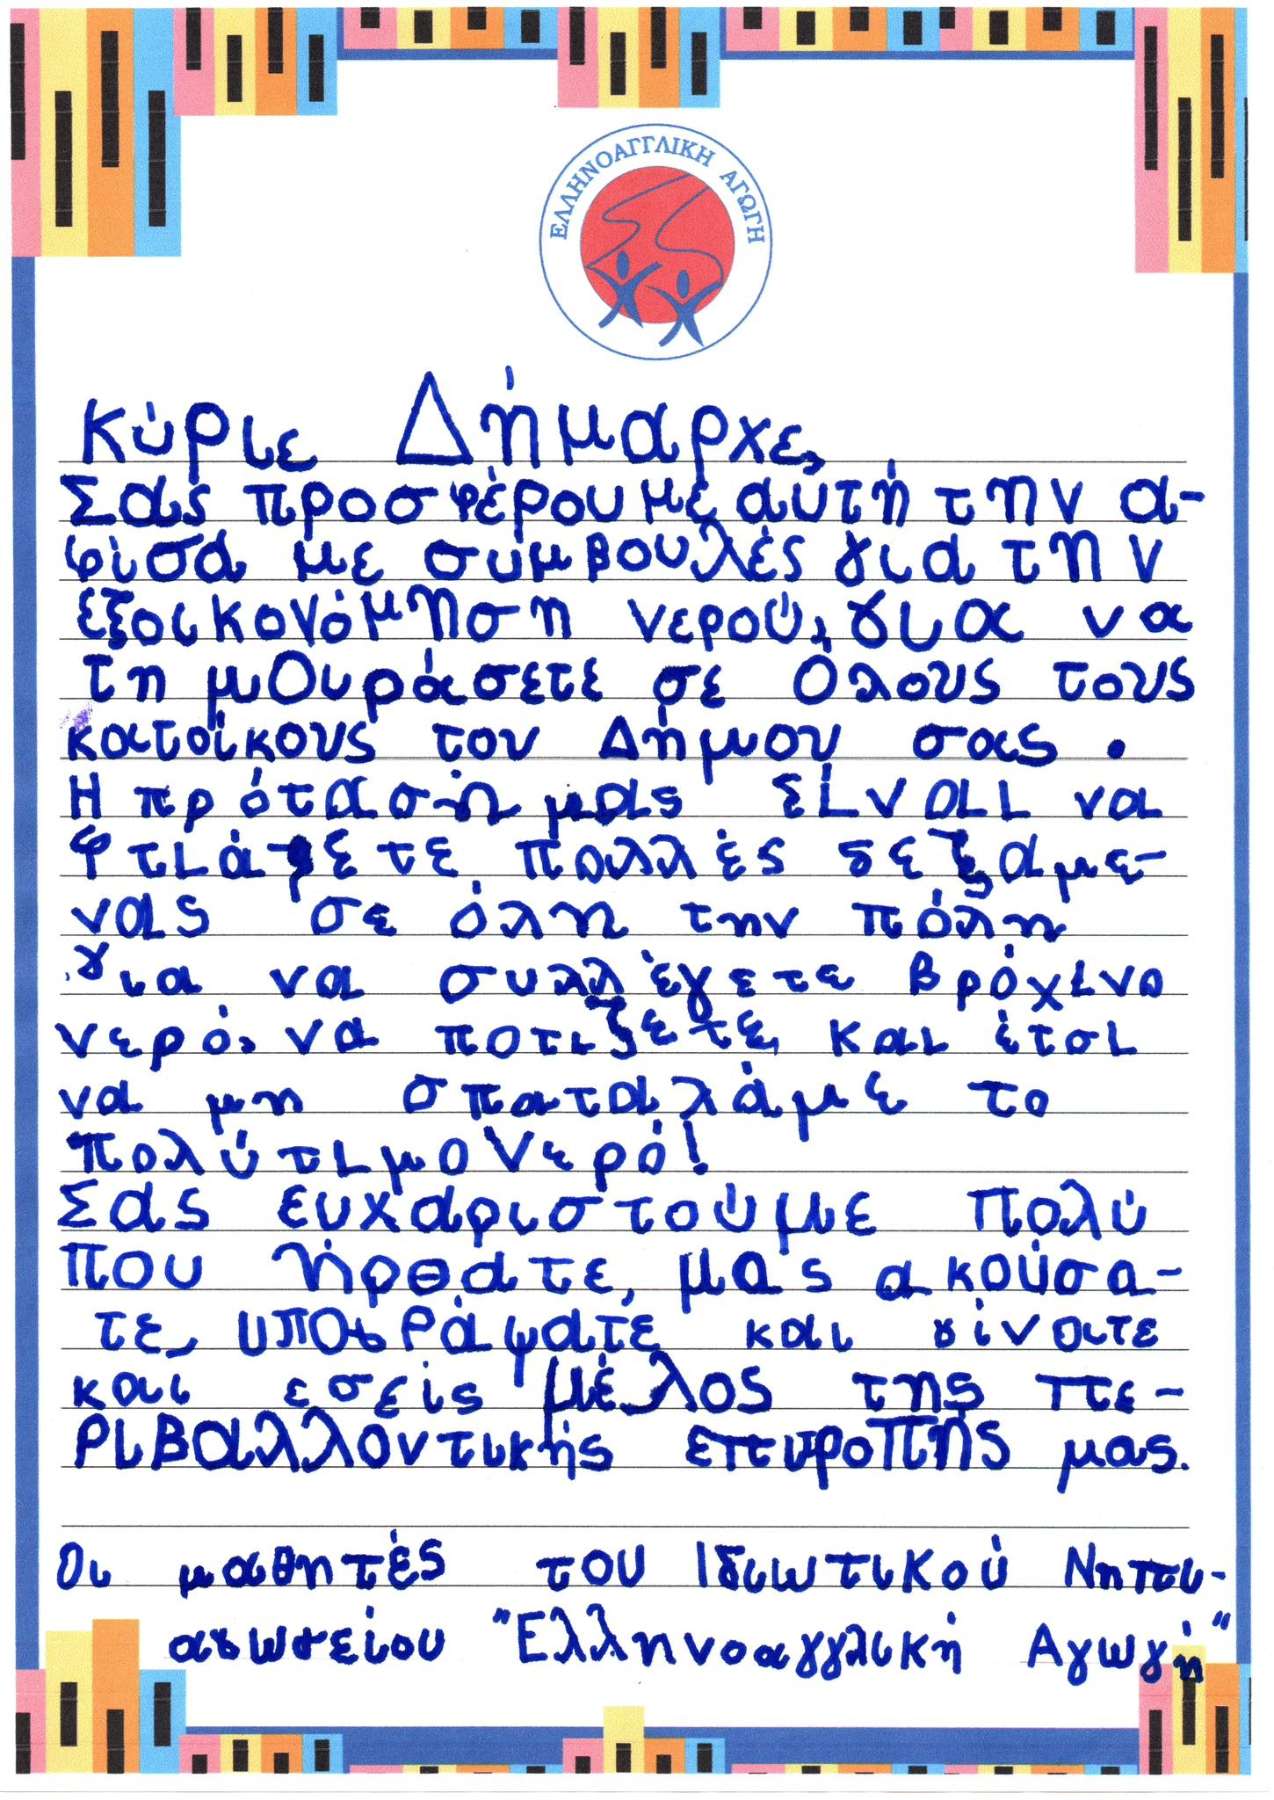 ΕΛΛΗΝΟΑΓΓΛΙΚΗ ΑΓΩΓΗ
Κύριε Δήμαρχε,
Σας προσφέρουμε αυτή την α-
φίσα με συμβουλές για την
εξοικονόμηση νερού, για να
τη μοιράσετε σε όλους τους
κατοίκους του Δήμου σας.
Η πρότασή μας είναι να
φτιάξετε πολλές δεξαμε-
νές σε όλη την πόλη
για να συλλέγετε βρόχινο
νερό, να ποτίζετε, και έτσι
να μη σπαταλάμε το
πολύτιμο νερό!
Σας ευχαριστούμε πολύ
που ήρθατε, μας ακούσα-
τε, υπογράψατε και γίνατε
και εσείς μέλος της πε-
ριβαλλοντικής επιτροπής μας.
Οι μαθητές του Ιδιωτικού Νηπι-
αγωγείου "Ελληνοαγγλική Αγωγή"